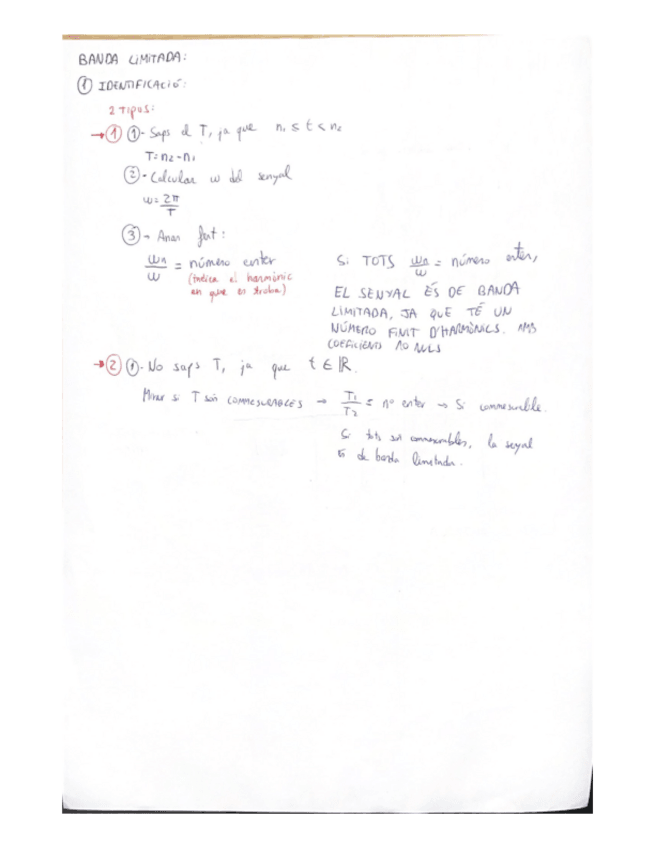 BANDA LIMITADA:
① IDENTIFICACIÓ:
2 TIPUS:
→ ① ①- Saps el T, ja que n₁ ≤ t < n₂
T = n₂ - n₁
② - Calcular ω del senyal
ω = 2π/T
③ - Anar fent:
ωn/ω = número enter
(Indica el harmònic en que es troba)
Si TOTS ωn/ω = número enter,
EL SENYAL ÉS DE BANDA
LIMITADA, JA QUE TÉ UN
NÚMERO FINIT D'HARMÒNICS. AMB
COEFICIENTS NO NULS
→ ② ①- No saps T, ja que t ∈ ℝ.
Mirar si T són COMMESURABLES → T₁/T₂ = nº enter → Si commesurable.
Si tots són commesurables, la senyal
és de banda limitada.